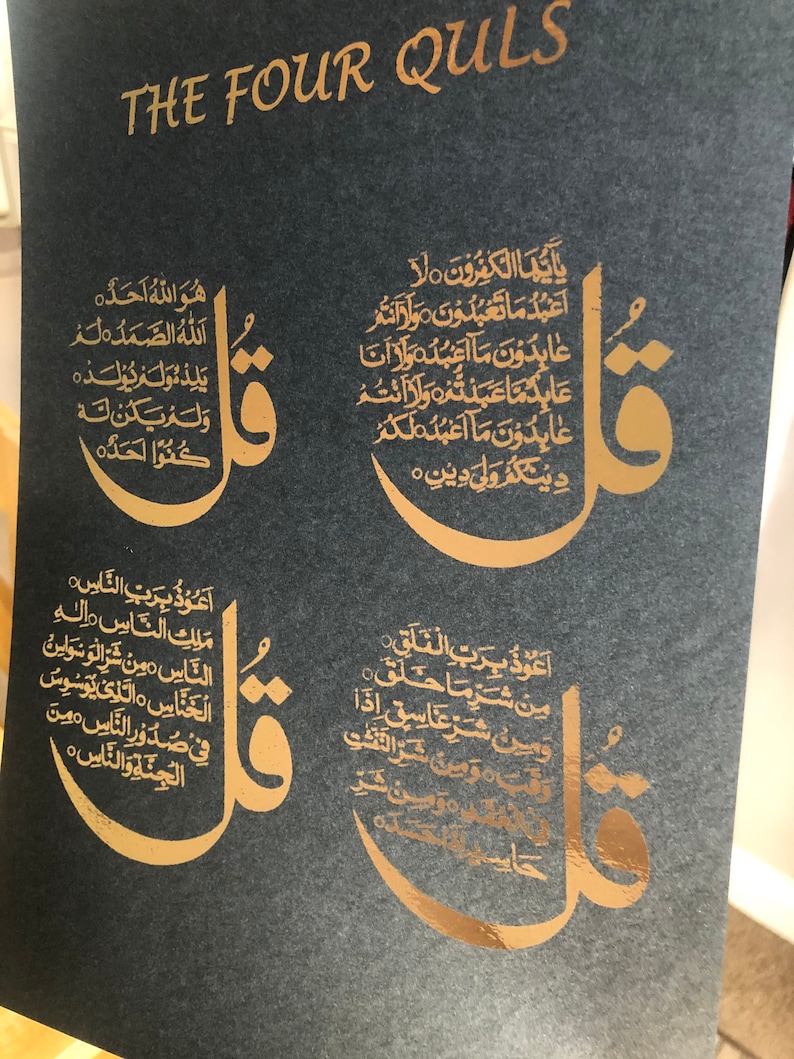 THE FOUR QULS
قُل
يٰٓاَيُّهَا الْكٰفِرُوْنَ○ لَآ
اَعْبُدُ مَا تَعْبُدُوْنَ○ وَلَآ اَنْتُمْ
عٰبِدُوْنَ مَآ اَعْبُدُ○ وَلَآ اَنَا
عَابِدٌ مَّا عَبَدْتُّمْ○ وَلَآ اَنْتُمْ
عٰبِدُوْنَ مَآ اَعْبُدُ○ لَكُمْ
دِيْنُكُمْ وَلِيَ دِيْنِ○
قُل
هُوَ اللّٰهُ اَحَدٌ○
اَللّٰهُ الصَّمَدُ○ لَمْ
يَلِدْ○ وَلَمْ يُوْلَدْ○
وَلَمْ يَكُنْ لَهٗ
كُفُوًا اَحَدٌ○
قُل
اَعُوْذُ بِرَبِّ الْفَلَقِ○
مِنْ شَرِّ مَا خَلَقَ○
وَمِنْ شَرِّ غَاسِقٍ اِذَا
وَقَبَ○ وَمِنْ شَرِّ النَّفّٰثٰتِ
فِى الْعُقَدِ○ وَمِنْ شَرِّ
حَاسِدٍ اِذَا حَسَدَ○
قُل
اَعُوْذُ بِرَبِّ النَّاسِ○
مَلِكِ النَّاسِ○ اِلٰهِ
النَّاسِ○ مِنْ شَرِّ الْوَسْوَاسِ
الْخَنَّاسِ○ الَّذِىْ يُوَسْوِسُ
فِىْ صُدُوْرِ النَّاسِ○ مِنَ
الْجِنَّةِ وَالنَّاسِ○